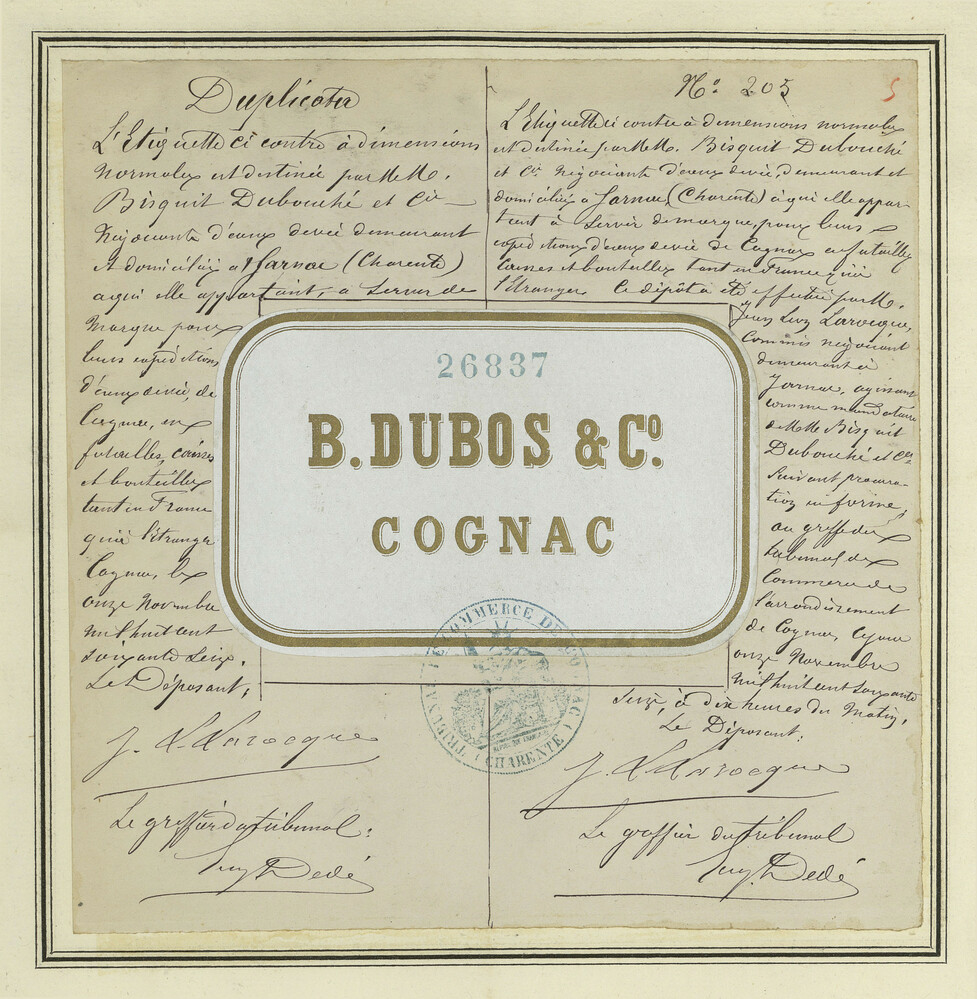 Duplicata
L'Etiquette ci contre à dimensions
normales est destinée par MM.
Bisquit Dubouché et Cie
Négociants d'eaux devie demeurant
et domiciliés à Jarnac (Charente)
aqui elle appartient, a Servir de
Marque pour
leurs expéditions
d'eaux devie, de
Cognac, en
futailles, caisses
et bouteilles
tant en France
qu'à l'étranger
Cognac, le
onze Novembre
mil huit cent
soixante Seize.
Le Déposant;
J. L. Larocque
Le greffier du tribunal:
Eug. Dedé
No. 205
5
L'Etiquette ci contre à dimensions normales
est destinée par MM. Bisquit Dubouché
et Cie Négociants d'eaux devie, demeurant et
domiciliés à Jarnac, (Charente) à qui elle appar-
tient à Servir de marque, pour leurs
expéditions d'eaux devie de Cognac en futailles
caisses et bouteilles tant en France qu'à
l'Etranger. Ce dépôt a été effectué par M.
Jean Léon Larocque,
Commis négociant
demeurant à
Jarnac, agissant
comme mandataire
de MM. Bisquit
Dubouché et Cie
Suivant procura-
tion en forme,
au greffe du
tribunal de
Commerce de
l'arrondissement
de Cognac,
onze Novembre
mil huit cent soixante
Seize, à dix heures du Matin,
Le Déposant:
J. L. Larocque
Le greffier du tribunal
Eug. Dedé
26837
B. DUBOS & Co.
COGNAC
TRIBUNAL DE COMMERCE DE COGNAC (CHARENTE)